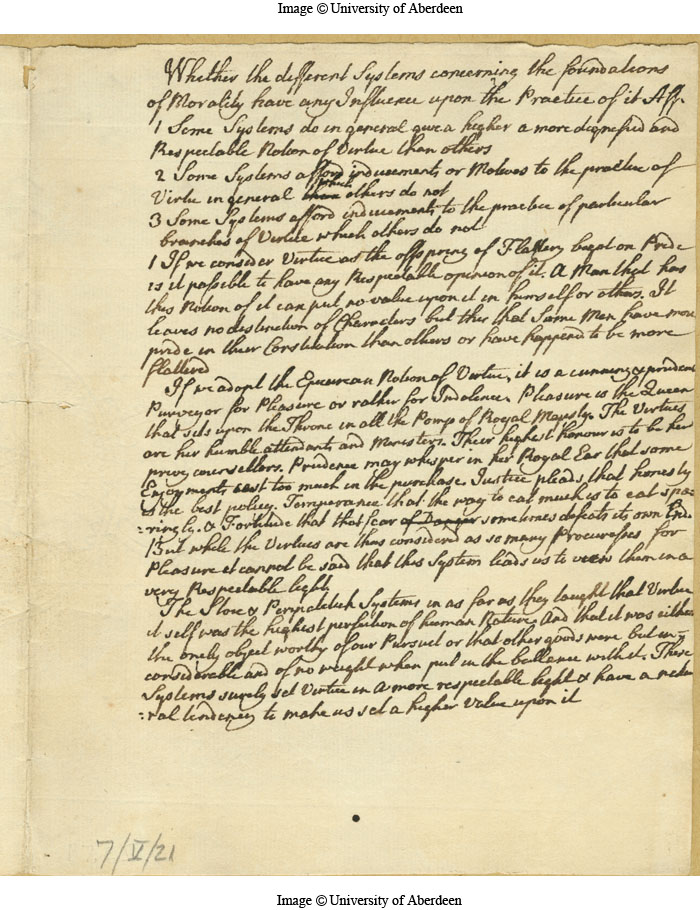 Image © University of Aberdeen
Whether the different Systems concerning the foundations
of Morality have any Influence upon the Practice of it Aff.
1 Some Systems do in general give a higher a more dignified and
Respectable Notion of Virtue than others
2 Some Systems afford inducements or Motives to the practice of
which
Virtue in general than others do not
3 Some Systems afford inducements to the practice of particular
branches of Virtue which others do not
1 If we consider Virtue as the offspring of Flattery begot on Pride
is it possible to have any Respectable opinion of it. A Man that has
this Notion of it can put no value upon it in himself or others. It
leaves no distinction of Characters but this that Some Men have more
pride in their Constitution than others or have happened to be more
flattered
If we adopt the Epicurean Notion of Virtue, it is a cunning & prudent
Purveyor for Pleasure or rather for Indolence. Pleasure is the Queen
that sits upon the Throne in all the Pomp of Royal Majesty. The Virtues
are her humble attendants and Ministers. Their highest honour is to be her
privy counsellors. Prudence may whisper in her Royal Ear that some
Enjoyments cost too much in the purchase. Justice pleads that honesty
is the best policy. Temperance that the way to eat much is to eat spa-
:ringly. & Fortitude that that fear of Danger sometimes defeats its own End.
But while the Virtues are thus considered as so many Procuresses for
Pleasure it cannot be said that this System leads us to view them in a
very Respectable light
The Stoic & Peripatetick Systems in as far as they taught that Virtue
it self was the highest perfection of human Nature, And that it was either
the onely object worthy of our Pursuit or that other goods were but in-
considerable and of no weight when put in the ballance with it. These
Systems surely set Virtue in a more respectable light & have a natu
:ral tendency to make us set a higher value upon it
7/V/21
Image © University of Aberdeen